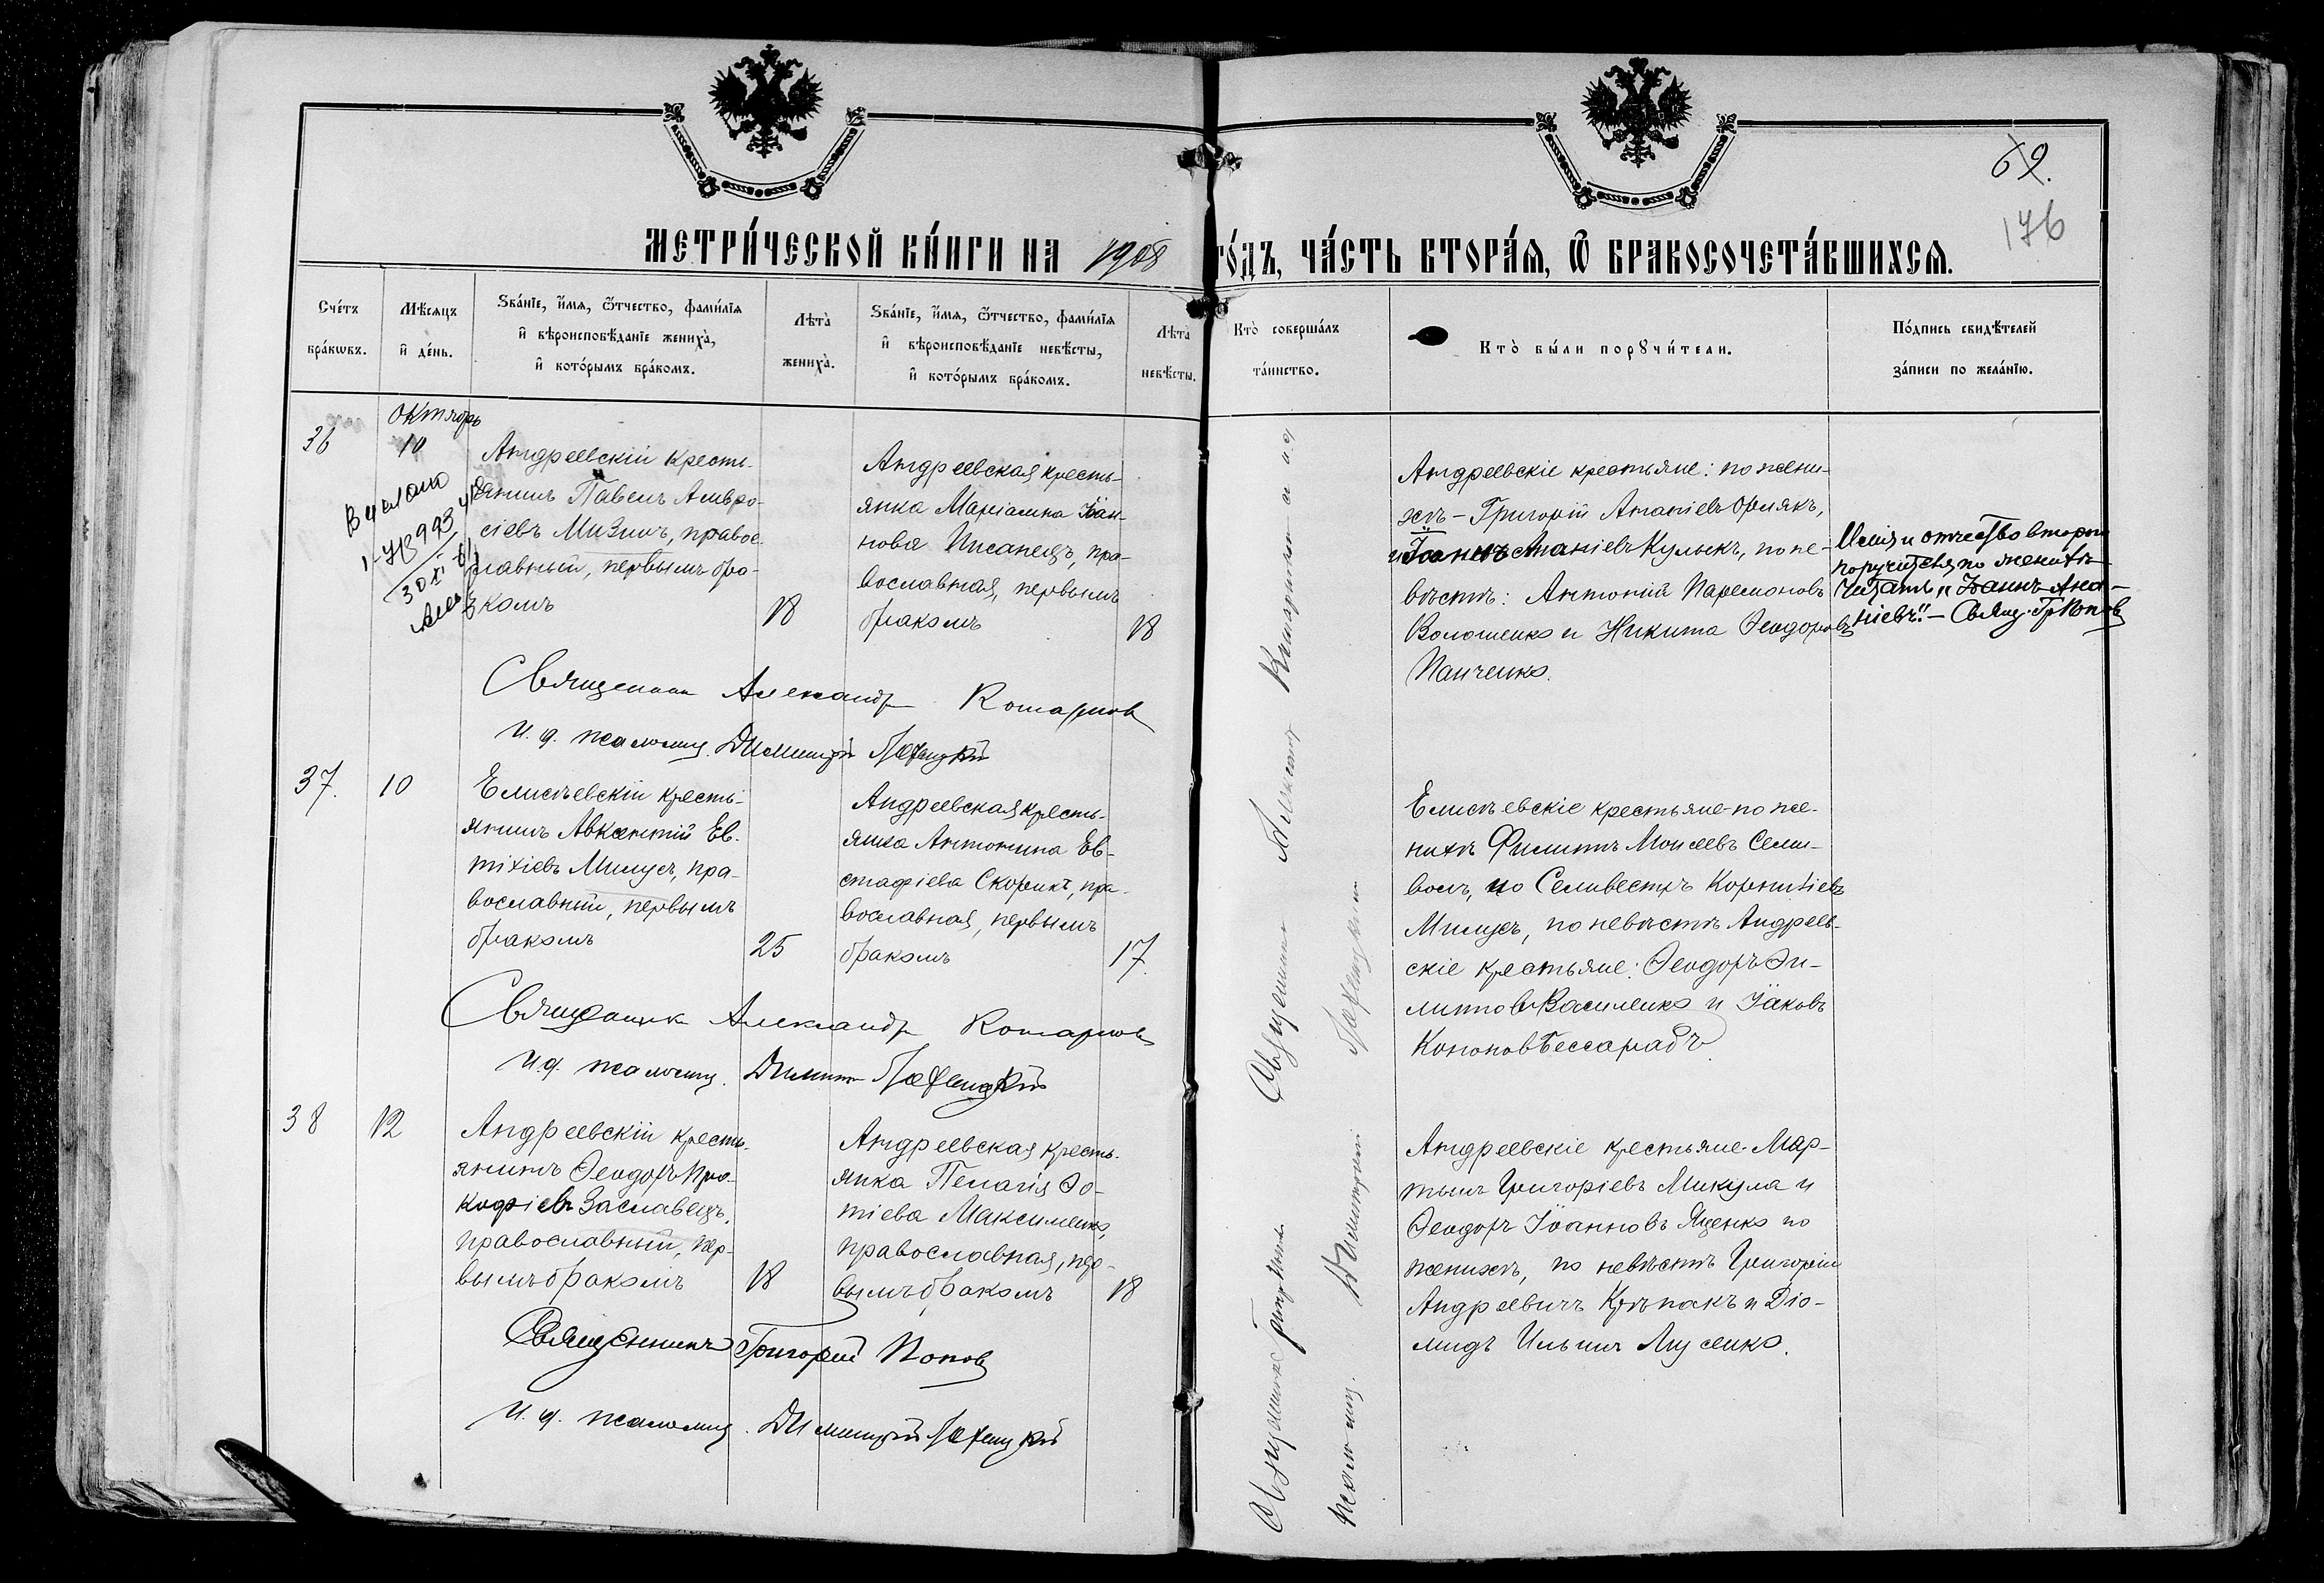 69.
176
МЕТРИ́ЧЕСКОЙ КНИ́ГИ НА 1908 ГО́ДЪ, ЧА́СТЬ ВТОРА́Я, Ѿ БРАКОСОЧЕТА́ВШИХСЯ.
Сче́тъ
бра́кѡвъ.
Мѣ́сяцъ
и҆ де́нь.
Ѕва́нїе, и҆́мя, ѻ҆́тчество, фами́лїя
и҆ вѣроисповѣ́данїе жениха̀,
и҆ кото́рымъ бра́комъ.
Лѣта̀
жениха̀.
Ѕва́нїе, и҆́мя, ѻ҆́тчество, фами́лїя
и҆ вѣроисповѣ́данїе невѣ́сты,
и҆ кото́рымъ бра́комъ.
Лѣта̀
невѣ́сты.
Кто̀ соверша́лъ
та́инство.
Кто̀ бы́ли порꙋчи́тели.
По́дпись свидѣ́телей
за́писи по жела́нїю.
36
Октябрь
10
Андреевскій кресть-
янинъ Павелъ Амвро-
сіевъ Мизинъ, правос-
лавный, первымъ бра-
комъ
18
Андреевская кресть-
янка Маріамна Іоан-
нова Писанецъ, пра-
вославная, первымъ
бракомъ
18
Андреевскіе крестьяне: по жени-
хѣ – Григорій Ананіевъ Орлякъ,
и Іоаннъ Ананіевъ Кулыкъ, по не-
вѣстѣ: Антоній Парамоновъ
Волошенко и Никита Ѳеодоровъ
Панченко.
Имя и отчество второго
поручителя по женихѣ
читать „Іоаннъ Ана-
ніевъ". – Свящ. Гр. Поповъ
Священникъ Александр Комарнов
И. д. псаломщ. Димитрій
37.
10
Елисѣевскій кресть-
янинъ Авксентій Ев-
тихіевъ Милусъ, пра-
вославный, первымъ
бракомъ
25
Андреевская кресть-
янка Антонина Ев-
стафіева Скорикъ, пра-
вославная, первымъ
бракомъ
17.
Елисѣевскіе крестьяне по же-
нихѣ Филиппъ Моисеевъ Сели-
вонъ, и Селивестръ Корниліевъ
Милусъ, по невѣстѣ Андреев-
скіе крестьяне: Ѳеодоръ Фи-
липповъ Василенко и Іаковъ
Кононовъ Бессарабъ.
Священникъ Александр Комарнов
И. д. псаломщ. Димит
38
12
Андреевскій кресть-
янинъ Ѳеодоръ Про-
кофіевъ Заславецъ,
православный, пер-
вымъ бракомъ
18
Андреевская кресть-
янка Пелагія Фо-
тіева Максименко,
православная, пер-
вымъ бракомъ
18
Андреевскіе крестьяне Мар-
тынъ Григоріевъ Микула и
Ѳеодоръ Іоанновъ Яценко по
женихѣ, по невѣстѣ Григорій
Андреевичъ Крѣпакъ и Діо-
мидъ Ильинъ Луценко.
Священникъ Григорій Поповъ
И. д. псаломщ. Димитрій